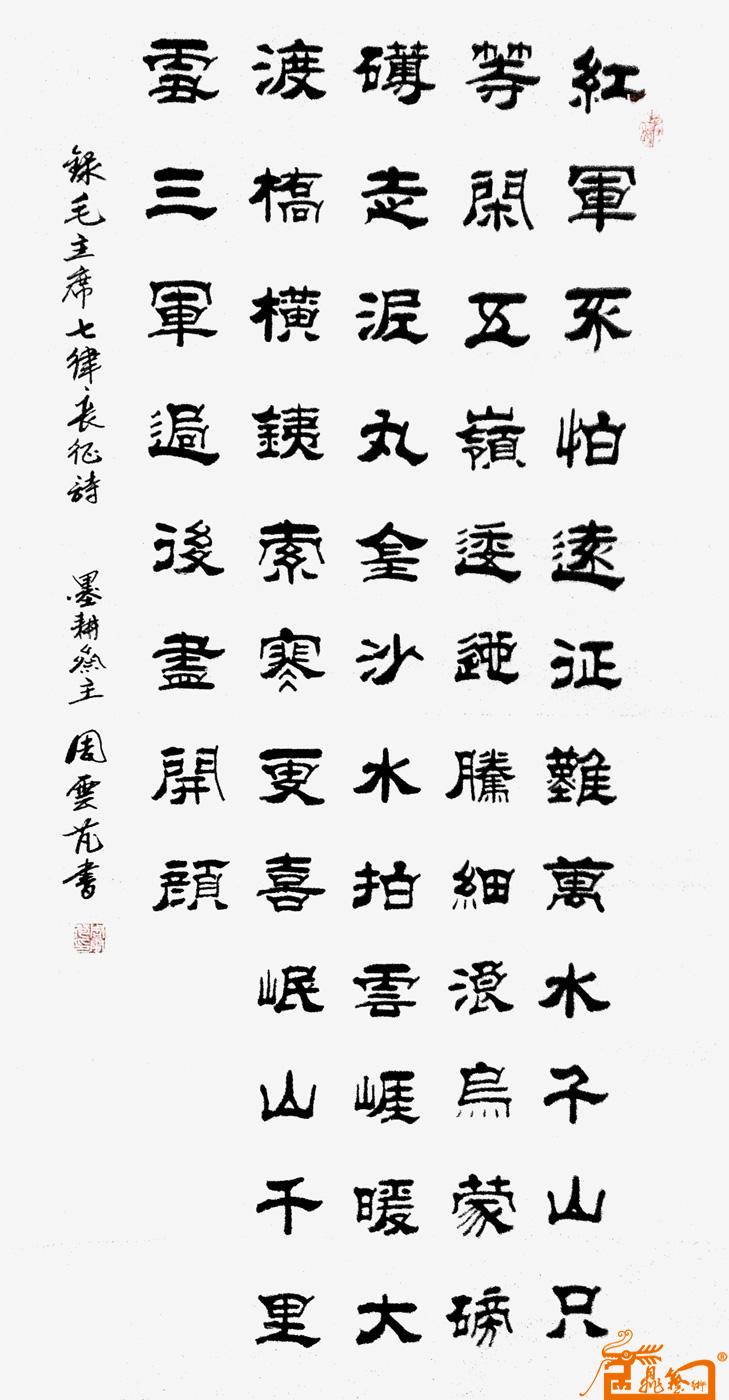 紅軍不怕遠征難萬水千山只
等閑五嶺逶迤騰細浪烏蒙磅
礴走泥丸金沙水拍雲崕暖大
渡橋橫銕索寒更喜岷山千里
雪三軍過後盡開顏
錄毛主席七律長征詩 墨耕齋主 周雲書